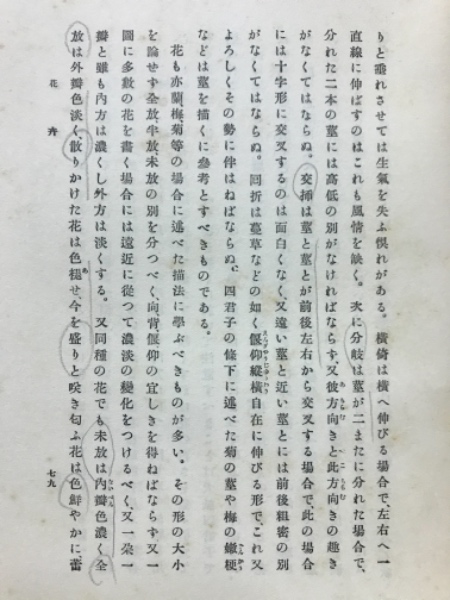 りと垂れさせては生氣を失ふ惧れがある。橫倚は橫へ伸びる場合で、左右へ一
直線に伸ばすのはこれも風情を缺く。次に分岐は莖が二またに分れた場合で、
分れた二本の莖には高低の別がなければならず、又彼方向きと此方向きの趣き
がなくてはならぬ。交揷は莖と莖とが前後左右から交叉する場合で、此の場合
には十字形に交叉するのは面白くなく、又遠い莖と近い莖とには前後粗密の別
がなくてはならぬ。囘折は蔓草などの如く偃仰縱橫自在に伸びる形で、これ又
よろしくその勢に伴はねばならぬ。四君子の條下に述べた菊の莖や梅の
などは莖を描くに參考とすべきものである。
花も亦蘭、梅、菊等の場合に述べた描法に學ぶべきものが多い。その形の大小
を論せず全放、半放、未放の別を分つべく、向背、偃仰の宜しきを得ねばならず、又一
圖に多數の花を畫く場合には遠近に從つて濃淡の變化をつけるべく、又一朶一
瓣と雖も內方は濃くし外方は淡くする。又同種の花でも未放は內瓣色濃く、全
放は外瓣色淡く、散りかけた花は色褪せ、今を盛りと咲き匂ふ花は色鮮やかに、蕾
花卉
七九